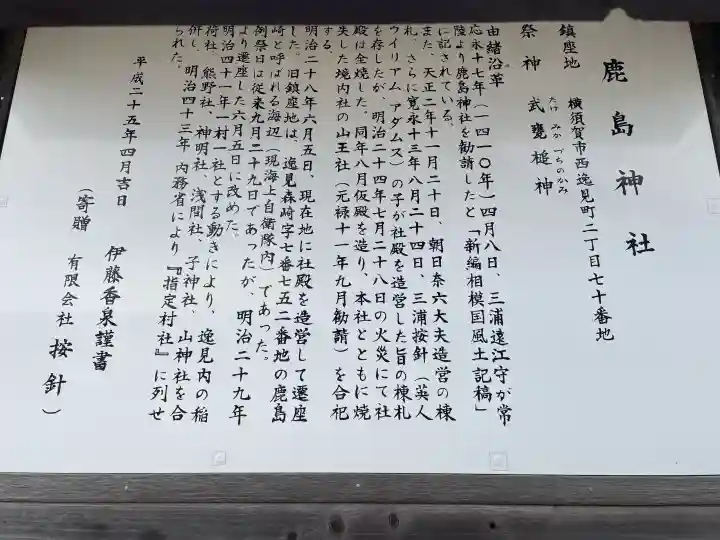 鹿島神社
鎮座地　横須賀市西逸見町二丁目七十番地
祭神　武甕槌神
たけ　みかづちのかみ
由緒沿革
応永十七年（一四一〇年）四月八日、三浦遠江守が常
陸より鹿島神社を勧請したと「新編相模国風土記稿」
に記されている。
また、天正二年十一月二十日、朝日奈六大夫造営の棟
札、さらに寛永十三年八月二十四日、三浦按針（英人
ウイリアム アダムス）の子が社殿を造営した旨の棟札
を存したが、明治二十四年七月二十八日の火災にて社
殿は全焼した。同年八月仮殿を造り、本社とともに焼
失した境内社の山王社（元禄十一年九月勧請）を合祀
する。
明治二十八年六月五日、現在地に社殿を造営して遷座
した。旧鎮座地は、逸見森崎字七番七五二番地の鹿島
崎と呼ばれる海辺（現海上自衛隊内）であった。
例祭日は従来九月二十九日であったが、明治二十九年
より遷座した六月五日に改めた。
明治四十一年一村一社とする動きにより、逸見内の稲
荷社、熊野社、神明社、浅間社、子神社、山神社を合
併し、明治四十三年 内務省により『指定村社』に列せ
られた。
平成二十五年四月吉日
伊藤香泉謹書
（寄贈　有限会社　按針）